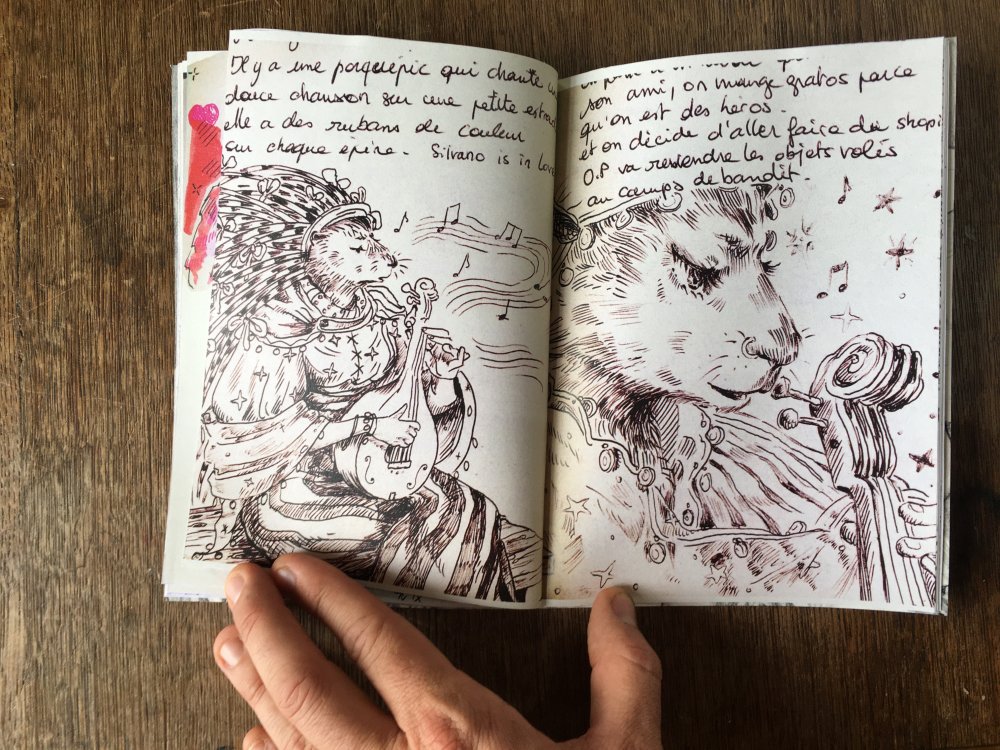 Il y a une porquépic qui chante
douce chanson sur une petite
elle a des rubans de couleur
sur chaque épine. Silvano is in love
son ami, on mange gratos parce
qu'on est des héros.
et on décide d'aller faire du
O.P va revendre les objets volés
au camps de bandit.